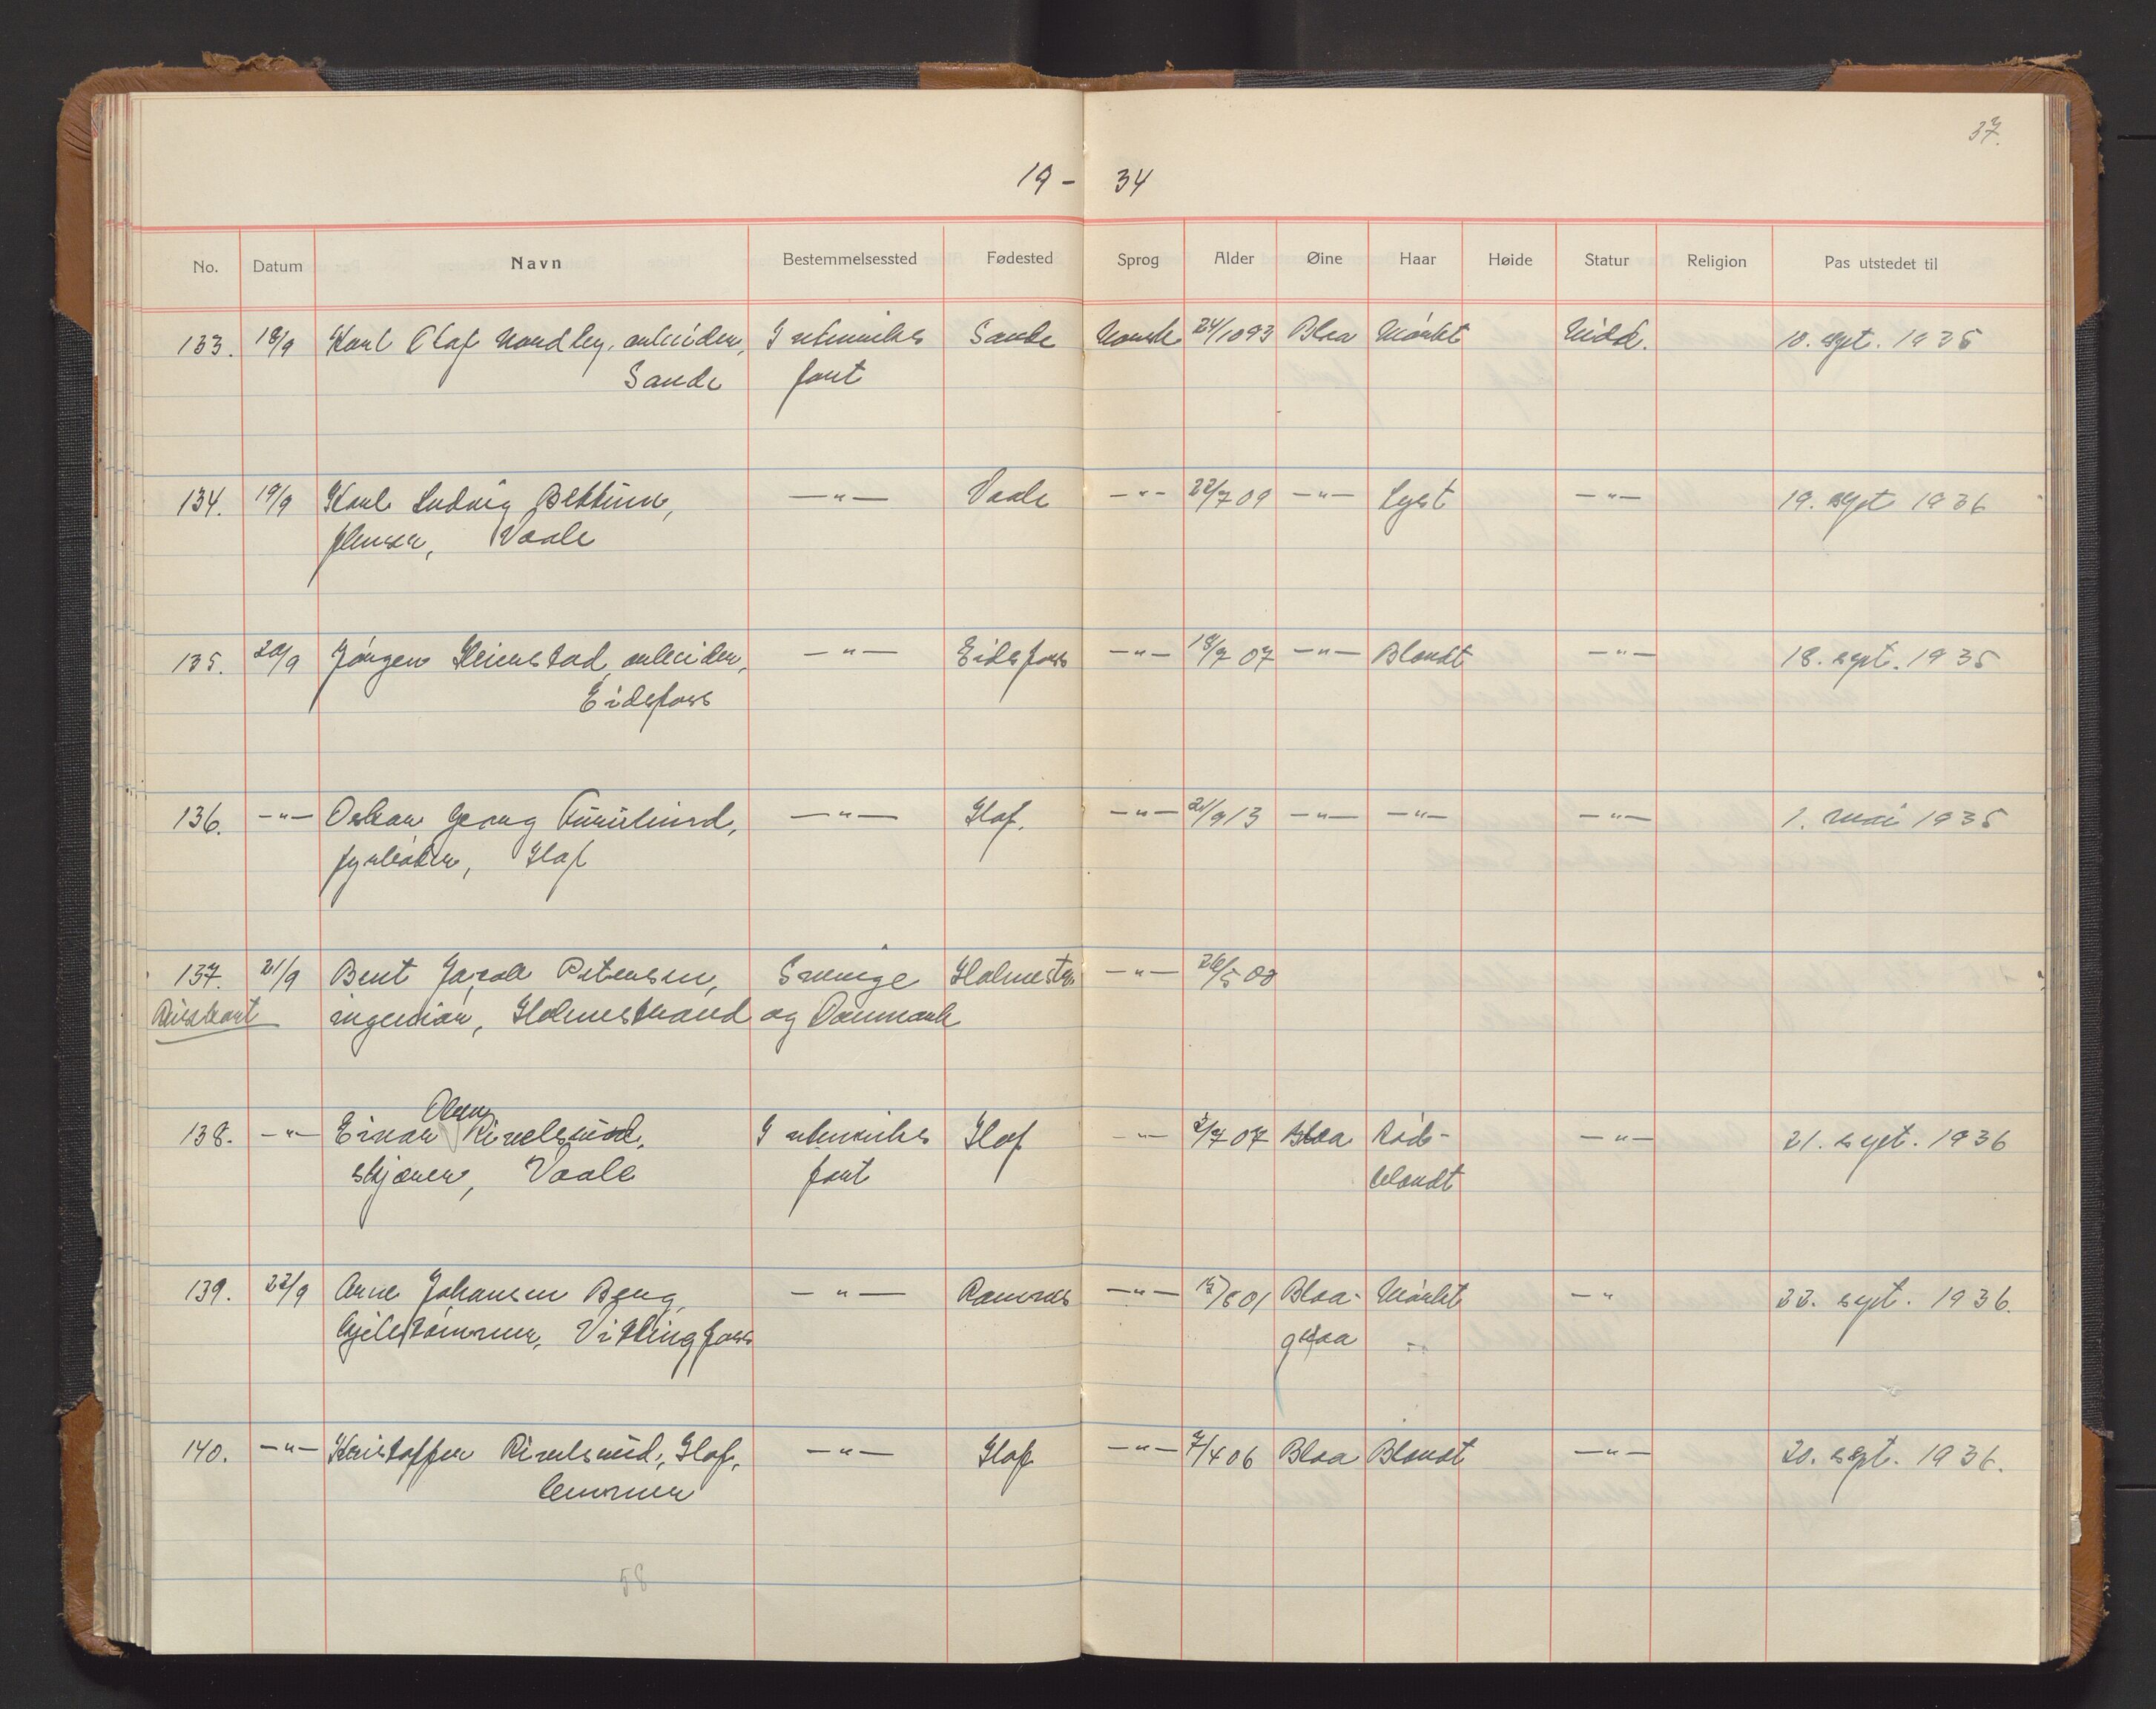 37.
19 - 34
No. Datum Navn Bestemmelsessted Fødested Sprog Alder Øine Haar Høide Statur Religion Pas utstedet til
133. 18/9 Karl Olaf Nordby, arbeider, I utenriks Sande Norsk 24/10 93 Blaa Mørkt Midd. 18. sept. 1935
Sande fart
134. 19/9 Karl Ludvig Bettum, —"— Vaale —"— 22/7 09 —"— Lyst —"— 19. sept 1936
flenser, Vaale
135. 20/9 Jørgen Heierstad, arbeider, —"— Eidsfoss —"— 18/7 07 —"— Blondt —"— 18. sept. 1935
Eidsfoss
136. —"— Oskar Georg —"— Hof. —"— 21/9 13 —"— —"— —"— 1. mai 1935
fyrbøter, Hof
137. 21/9 Bent Jacob Petersen, Sverige Holmestr. —"— 26/5 08
Reisekort ingeniør, Holmestrand og Danmark
Olsen
138. —"— Einar Rivelsrud, I utenriks Hof —"— 3/7 07 Blaa Rød- —"— 21. sept. 1936
skjærer, Vaale fart blondt
139. 22/9 Arne Johansen Berg, —"— Ramnes —"— 15/6 01 Blaa- Mørkt —"— 22. sept. 1936.
hjelpetømmer, Vittingfoss graa
140. —"— Kristoffer Rivelsrud, Hof, —"— Hof —"— 7/4 06 Blaa Blondt —"— 20. sept. 1936.
lemmer
58